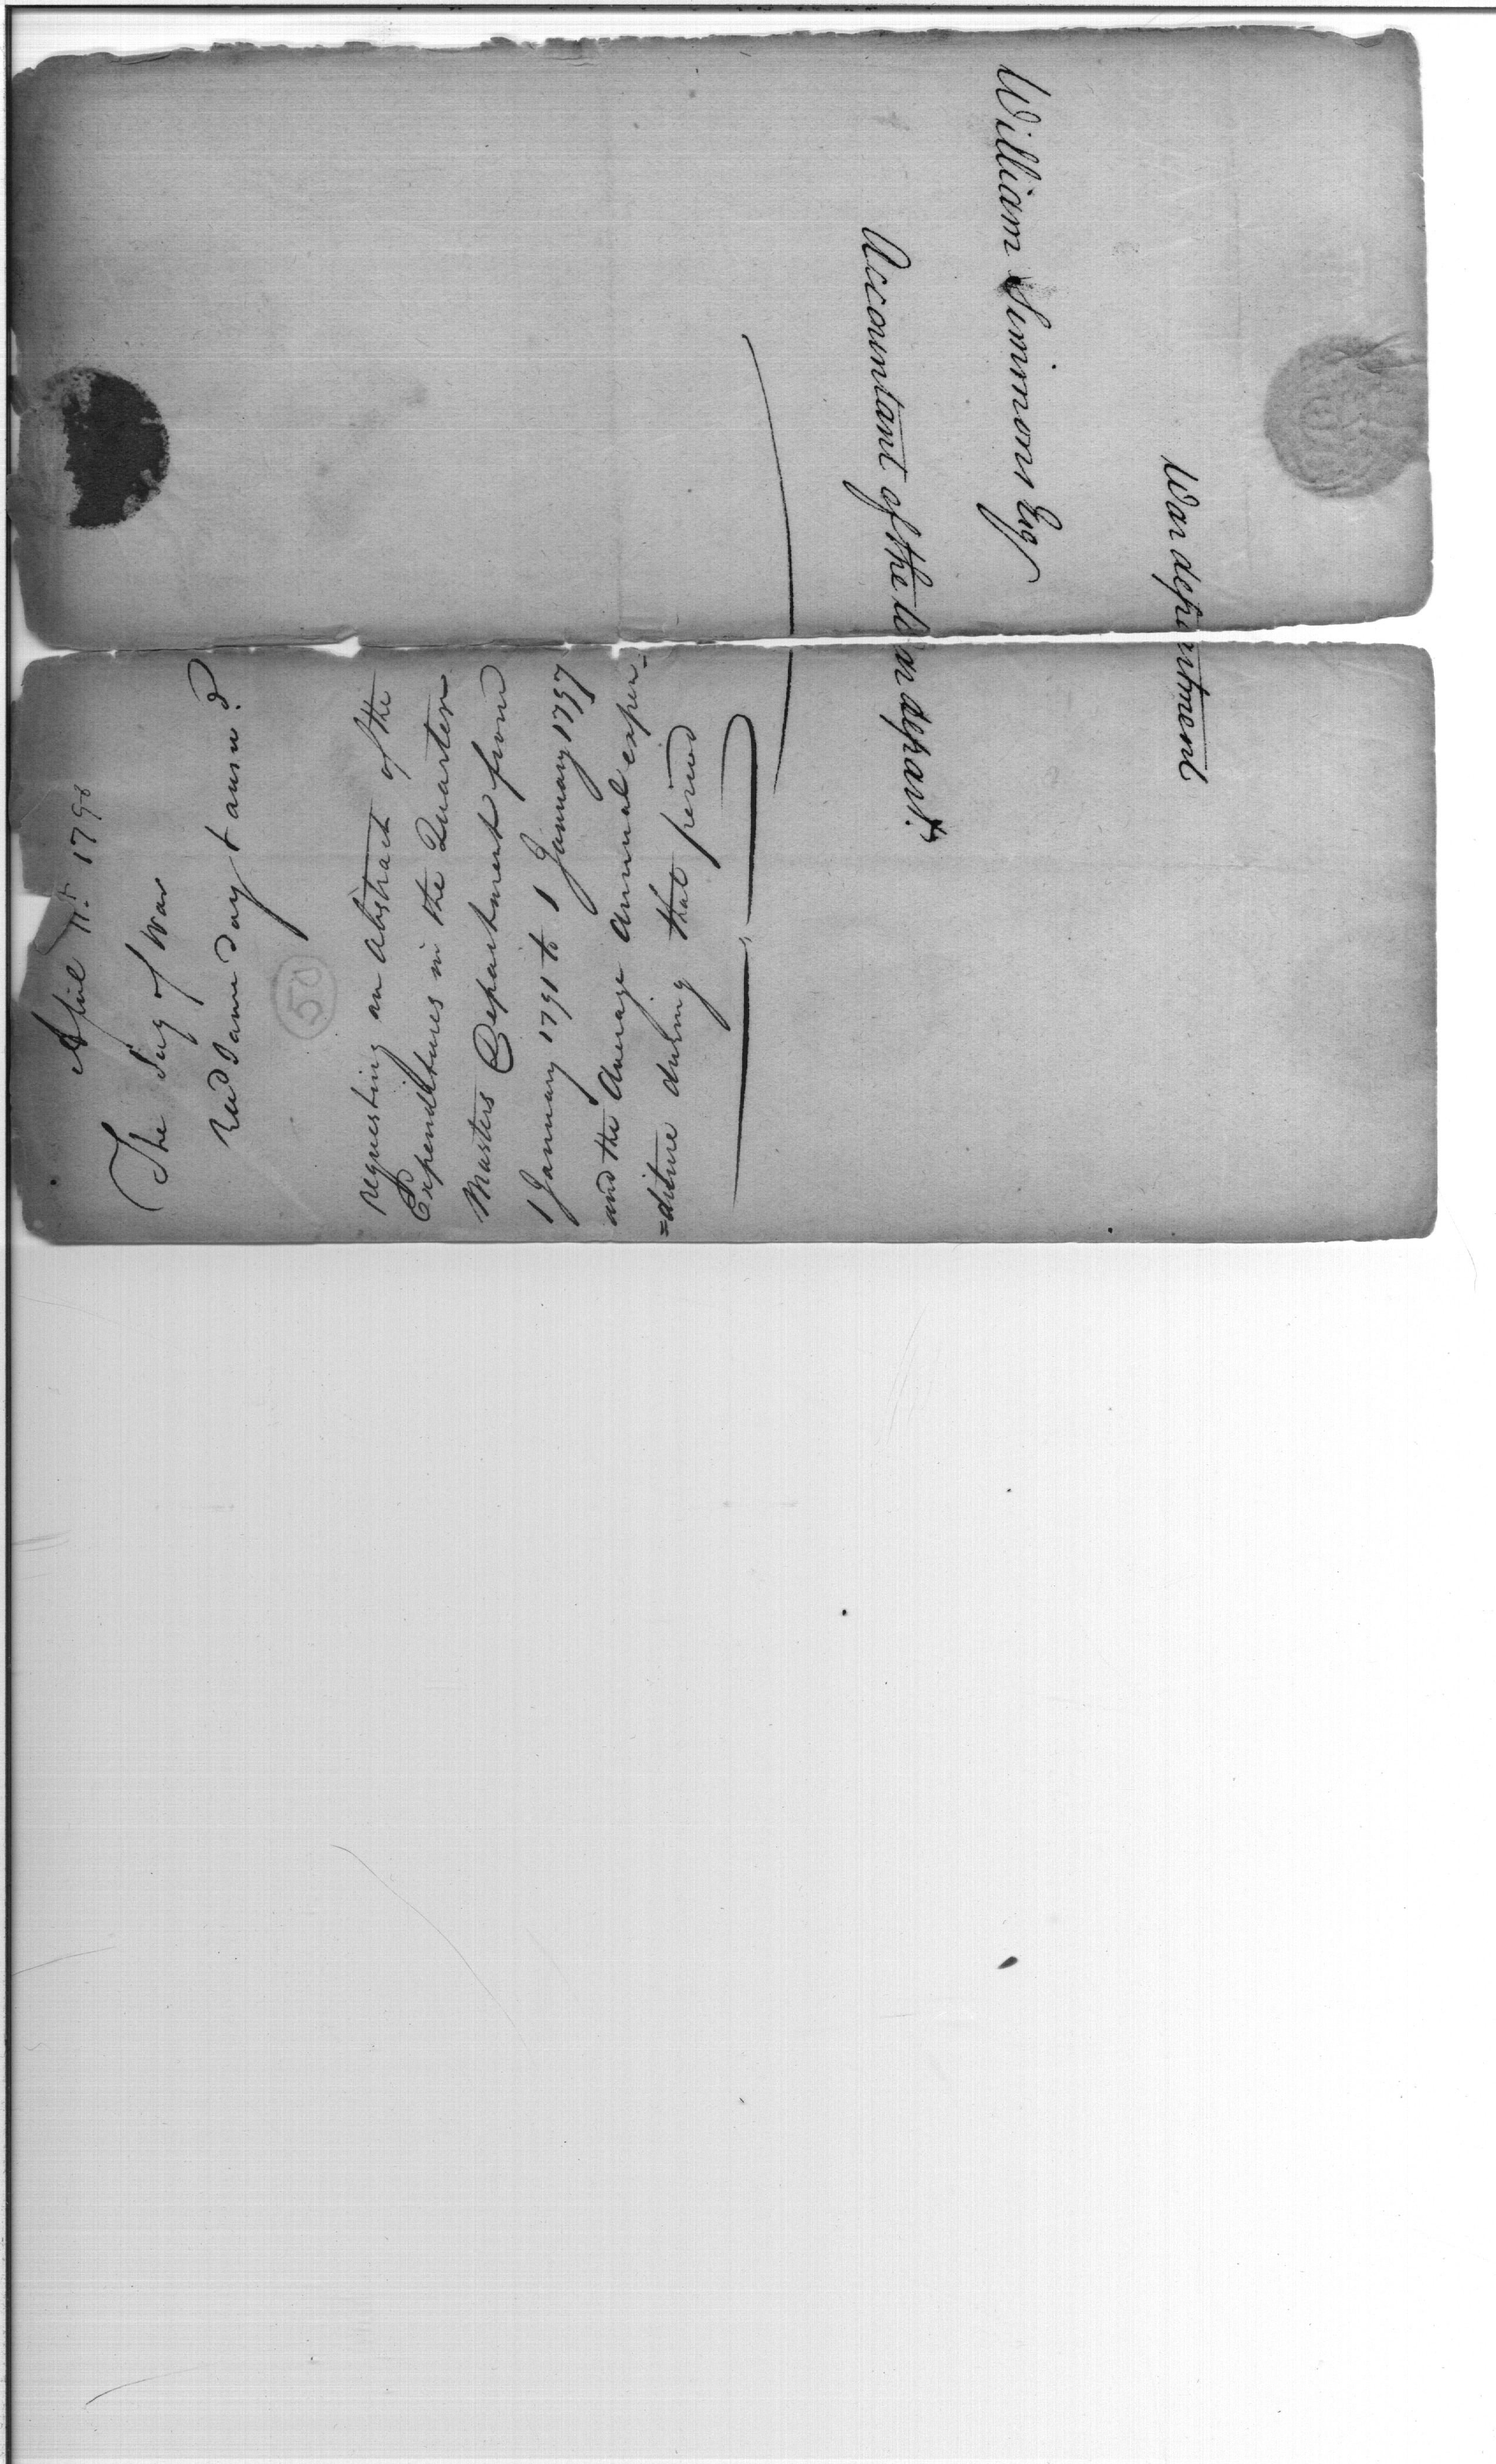 War department
William Simmons Esqr
Accountant of the War depart.
April 11. 1798
The Secy of War
Recd same day & answd
50
requesting an Abstract of the
Expenditures in the Quarter
Masters Department from
1 January 1791 to 1 January 1797
and the Average Annual expen-
=diture during that period